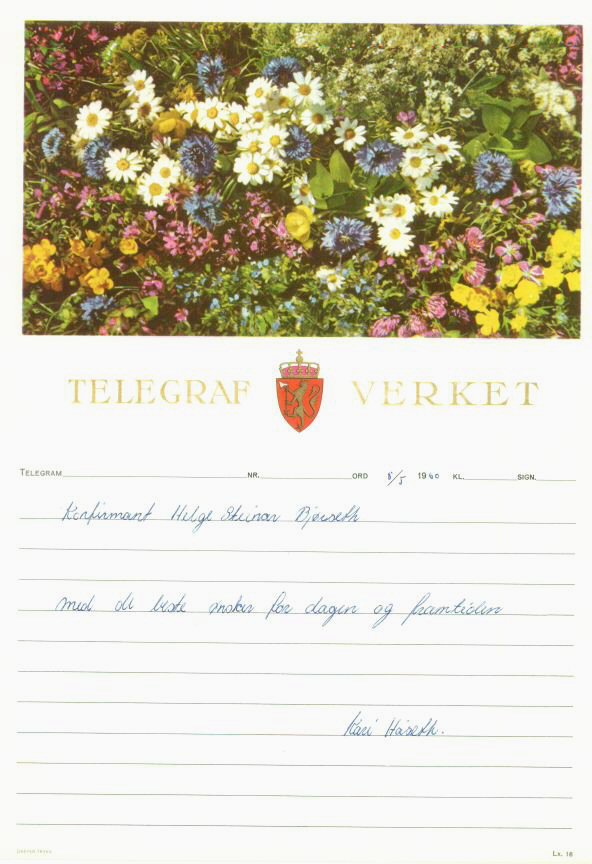 TELEGRAF VERKET
TELEGRAM NR. ORD 8/5 1960 KL. SIGN.
Konfirmant Helge Steinar Bjørseth
med de beste ønsker for dagen og framtiden
Kari Håseth.
Lx. 16